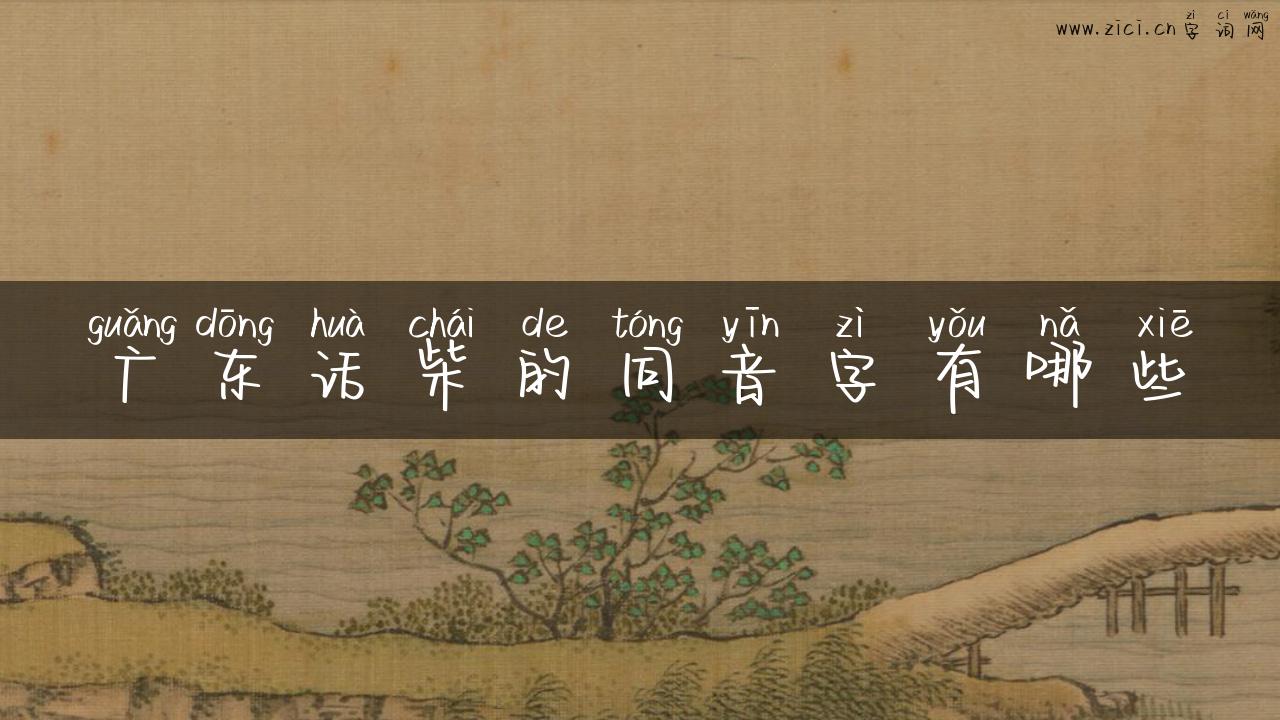 zì cí wǎng
www.zici.cn 字词网
guǎng dōng huà chái de tóng yīn zì yǒu nǎ xiē
广东话柴的同音字有哪些